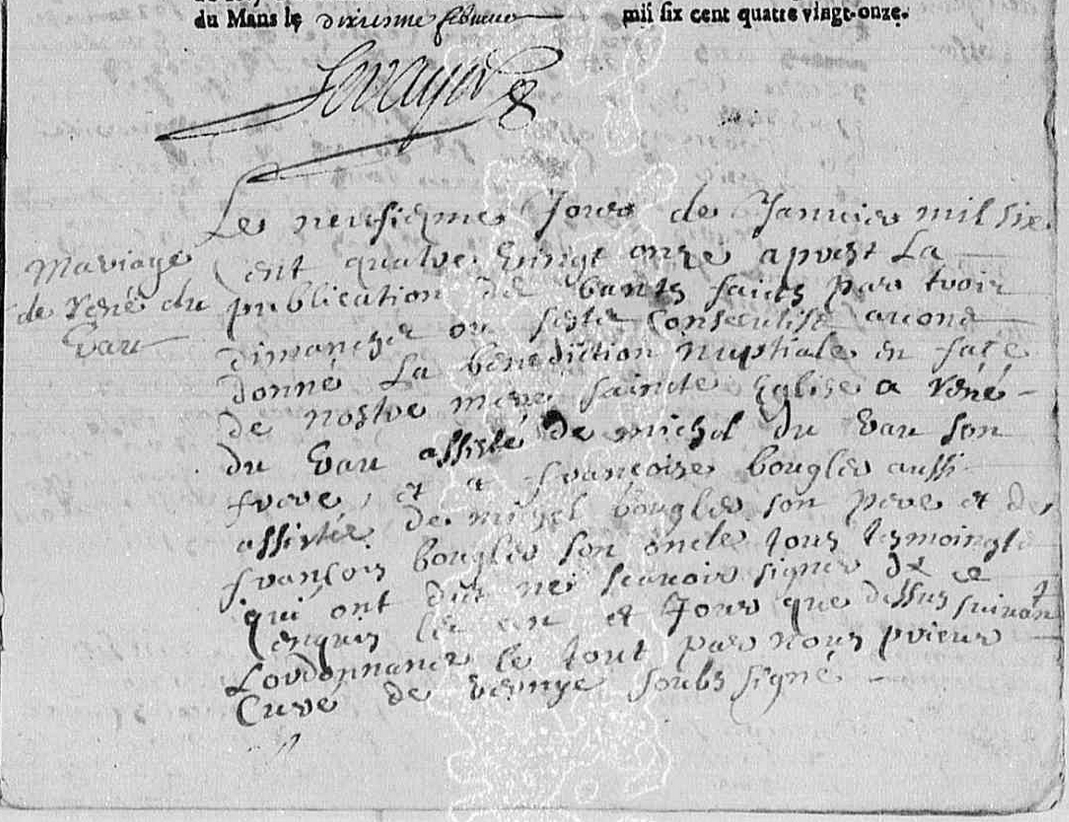 du Mans le dixiesme febvrier mil six cent quatre vingt-onze.
Le neufiezme Jour de Janvier mil six
Mariage
cent quatre vingt onze apres La
de René du
publication de bants faits par trois
Vau
dimanche ou feste Consecutifs avons
donné La benediction nuptiale en face
de nostre mere saincte Eglise a René
du Vau assisté de michel du Vau son
frere, et a françoise bougler aussi
assistée de michel bougler son pere et de
françois bougler son oncle tous tesmoingts
qui ont dit ne scavoir signer de ce
enquis les an et Jour que dessus suivant
Lordonnance le tout par nous prieur
Curé de soubs signé